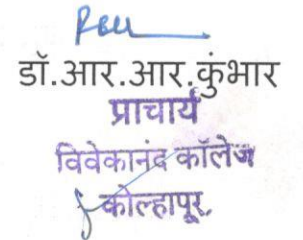 डॉ.आर.आर.कुंभार
प्राचार्य
विवेकानंद कॉलेज
कोल्हापूर.